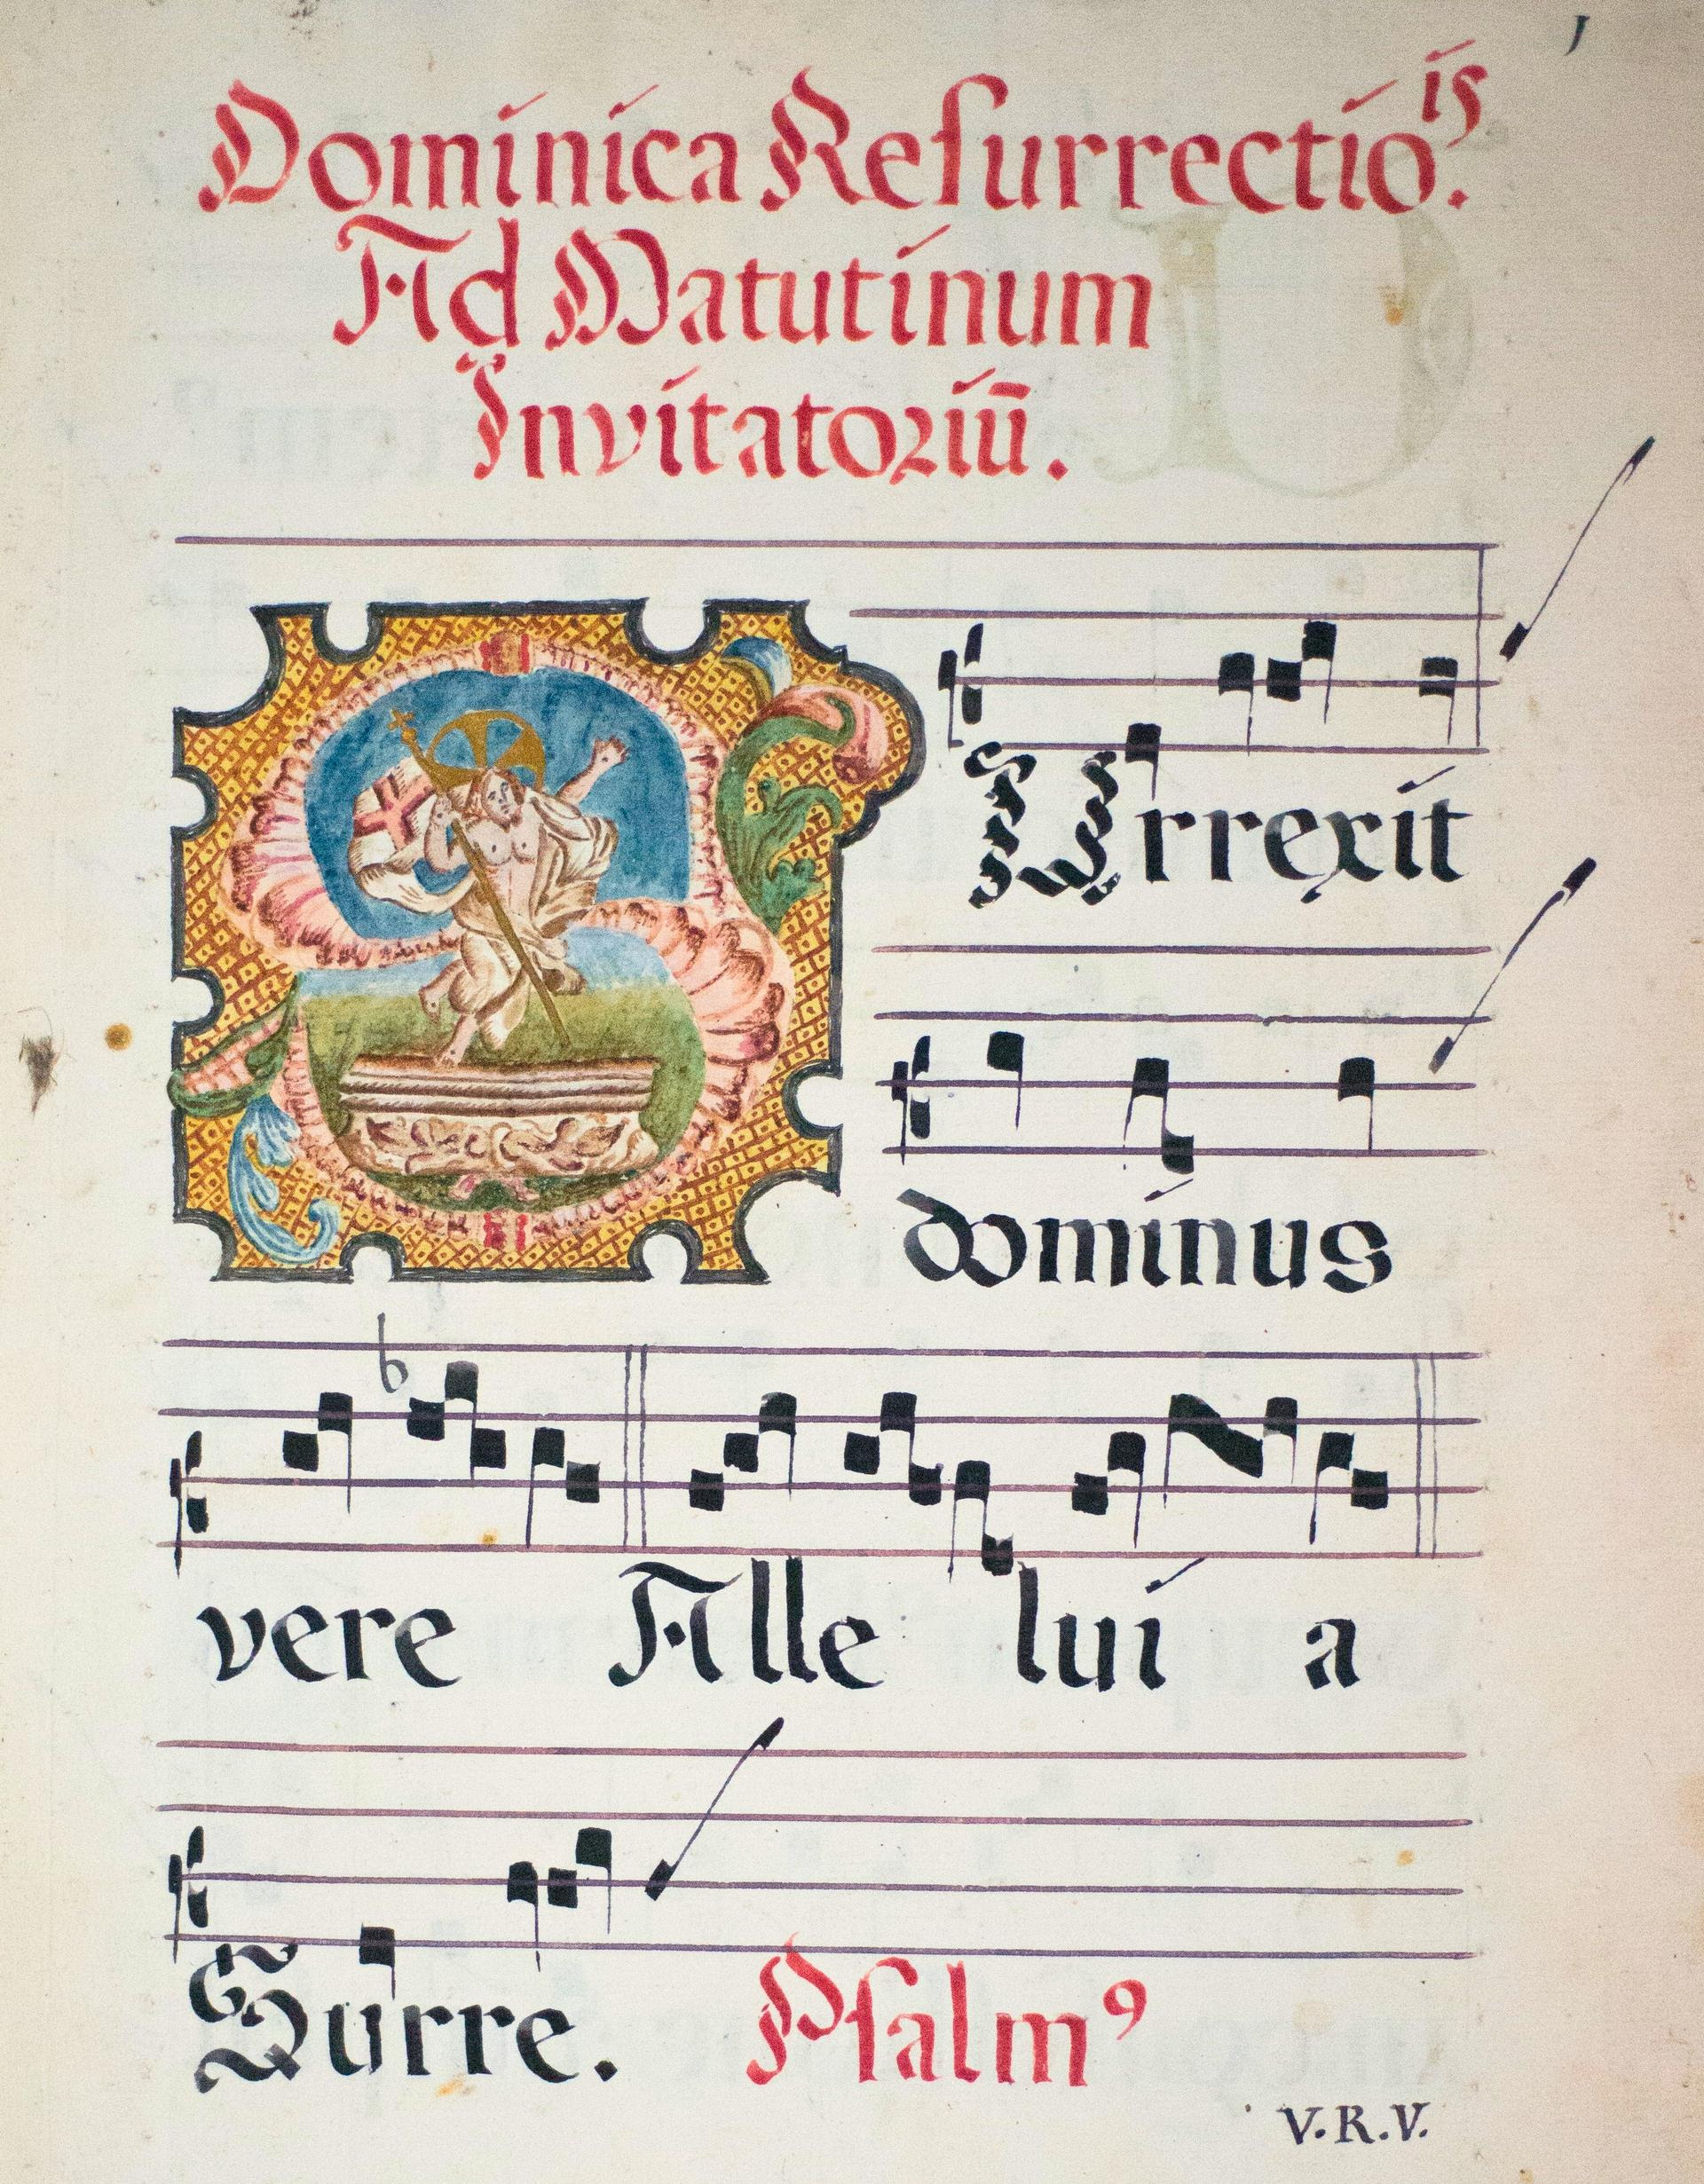 J
Dominica Reſurrectio.is
Ad Matutinum
Invitatoriū.
SUrrexit
dominus
b
vere Alle lui a
Surre. Pſalm9
V.R.V.